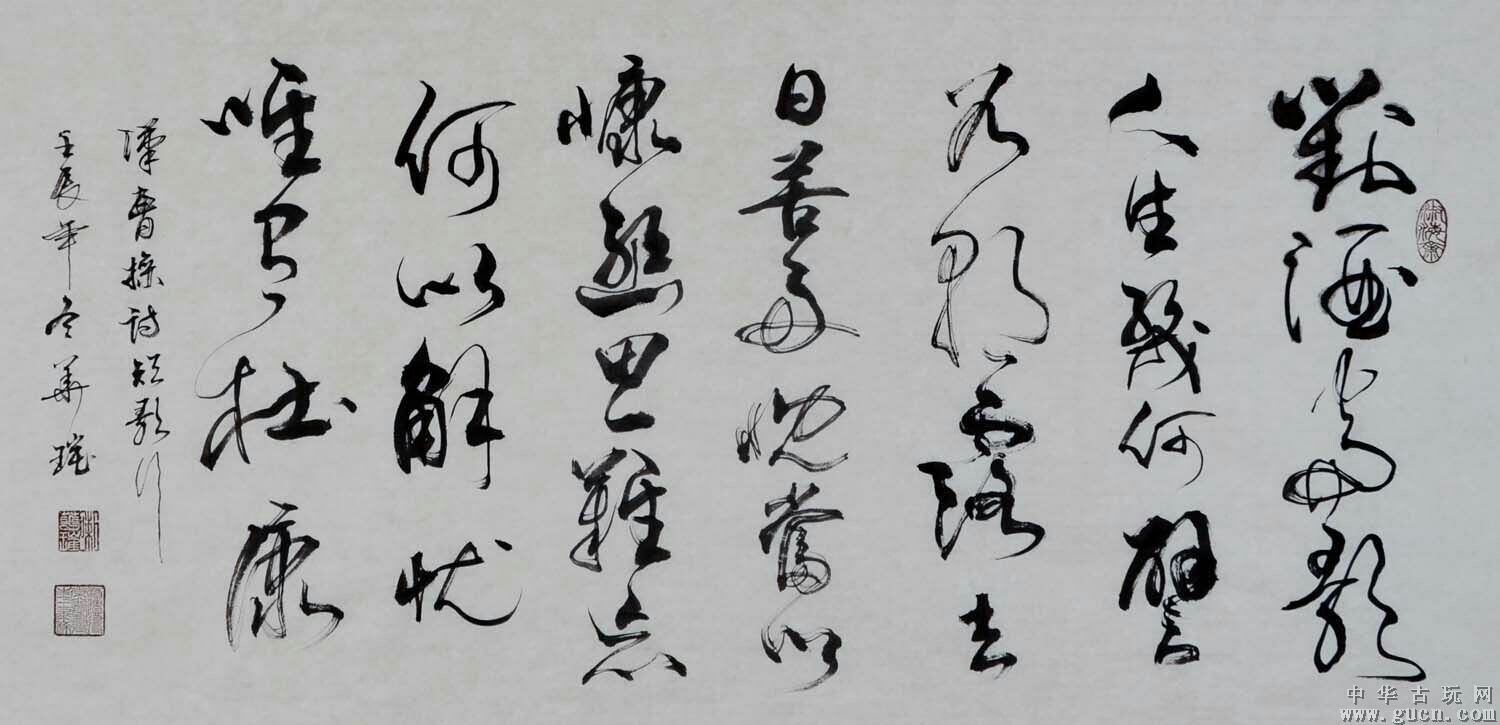 對酒當歌
人生幾何譬
如朝露去
日苦多慨當以
慷憂思難忘
何以解忧
唯有杜康
漢曹操詩短歌行
壬辰年冬華瑞
中华古玩网
www.gucn.com